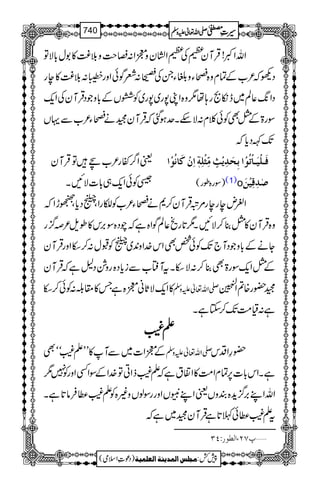 سیرتِ مصطفی صلی اللہ تعالیٰ علیہ وسلم 740
اللہ اکبر! قرآن عظیم کی عظیم الشان و معجزانہ فصاحت و بلاغت کا بول بالا تو
دیکھو کہ عرب کے تمام وہ فصحاء و بلغاء جن کی فصیحانہ شعر گوئی اور خطیبانہ بلاغت کا چار
دانگ عالم میں ڈنکا بج رہا تھا مگر وہ اپنی پوری پوری کوششوں کے باوجود قرآن کی ایک
سورۃ کے مثل بھی کوئی کلام نہ لا سکے۔ حد ہو گئی کہ قرآن مجید نے فصحاء عرب سے یہاں
تک کہہ دیا کہ
فَلْیَاْتُوْا بِحَدِیْثٍ مِّثْلِہٖۤ اِنْ کَانُوْا
صٰدِقِیْنَo (1) (سورہ طور)
یعنی اگر کفار عرب سچے ہیں تو قرآن
جیسی کوئی ایک ہی بات لائیں۔
الغرض چار چار مرتبہ قرآن کریم نے فصحاء عرب کو للکارا اور چیلنج دیا اور جھنجھوڑا کہ
وہ قرآن کا مثل بنا کر لائیں۔ مگر تاریخ عالم گواہ ہے کہ چودہ سو برس کا طویل عرصہ گزر
جانے کے باوجود آج تک کوئی شخص بھی اس خداوندی چیلنج کو قبول نہ کر سکا اور قرآن
کے مثل ایک سورۃ بھی بنا کر نہ لا سکا۔ یہ آفتاب سے زیادہ روشن دلیل ہے کہ قرآن
مجید حضور خاتم النبیین صلی اللہ تعالیٰ علیہ وسلم کا ایک لاثانی معجزہ ہے جس کا مقابلہ نہ کوئی کر سکا
ہے نہ قیامت تک کر سکتا ہے۔
علم غیب
حضور اقدس صلی اللہ تعالیٰ علیہ وسلم کے معجزات میں سے آپ کا ’’علم غیب‘‘ بھی
ہے۔ اس بات پر تمام امت کا اتفاق ہے کہ علم غیب ذاتی تو خدا کے سوا کسی اور کو نہیں مگر
اللہ اپنے برگزیدہ بندوں یعنی اپنے نبیوں اور رسولوں وغیرہ کو علم غیب عطا فرماتا ہے۔
یہ علم غیب عطائی کہلاتا ہے قرآن مجید میں ہے کہ
پ۲۷، الطور:۳۴
پیش کش: مجلس المدینۃ العلمیۃ (دعوتِ اسلامی)